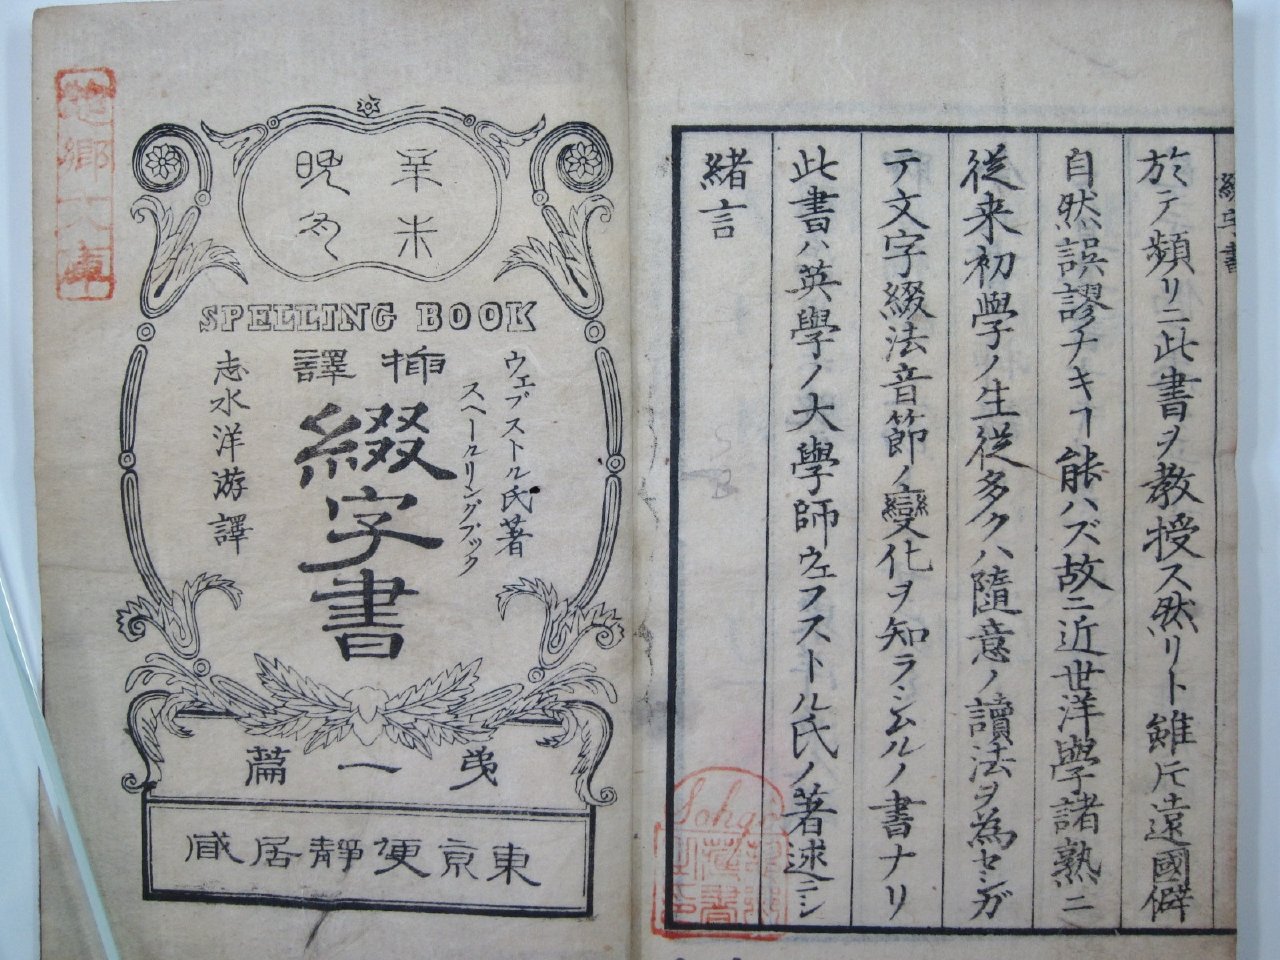 辛未
晩冬
SPELLING BOOK
ウェブストル氏著
スペールリングブック
挿譯
綴字書
志水洋游譯
苐一篇
東亰便靜居藏
緒言
此書ハ英學ノ大學師ウェフストル氏ノ著述ニシ
テ文字綴法音節ノ變化ヲ知ラシムルノ書ナリ
従来初學ノ生従多クハ隨意ノ讀法ヲ為セシガ
自然誤謬ナキヿ能ハズ故ニ近世洋學諸熟ニ
於テ頻リニ此書ヲ教授ス然リト雖𪜈遠國僻
綴字書
Sohgo